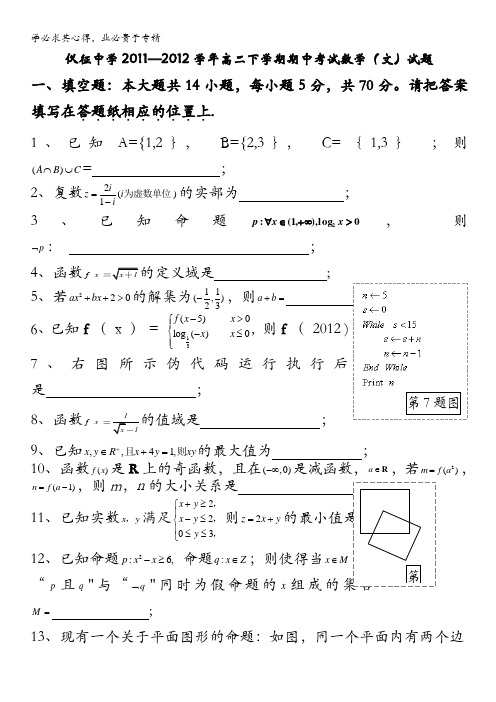 学必求其心得，业必贵于专精
仪征中学2011—2012学年高二下学期期中考试数学（文）试题
一、填空题：本大题共14小题，每小题5分，共70分。请把答案
填写在答题纸相应的位置上.
1、已知 A={1,2}， B={2,3}， C={1,3}；则
(A∩B)∪C= ；
2、复数z=2i/(1−i)(i为虚数单位)的实部为 ；
3、已知命题 p:∀x∈(1,+∞),log₂x>0， 则
¬p： ；
4、函数f x =√(x+1)的定义域是 ；
5、若ax²+bx+2>0的解集为(−1/2,1/3)，则a+b=
6、已知f（x）={f(x−5) x>0
log_(1/3)(−x) x≤0，则f（2012）
7、右图所示伪代码运行执行后
是 ；
n←5
s←0
While s<15
s←s+n
n←n−1
End While
Print n
第7题图
8、函数f x =1/√(x−1)的值域是 ；
9、已知x,y∈R⁺,且x+4y=1,则xy的最大值为 ；
10、函数f(x)是R上的奇函数，且在(−∞,0)是减函数，a∈R，若m=f(a²)，
n=f(a−1)，则m，n的大小关系是
11、已知实数x，y满足{x+y≥2，
x−y≤2，
0≤y≤3，则z=2x+y的最小值是
12、已知命题p:x²−x≥6， 命题q:x∈Z；则使得当x∈M
“p且q"与“¬q"同时为假命题的x组成的集合
M= ；
第
13、现有一个关于平面图形的命题：如图，同一个平面内有两个边